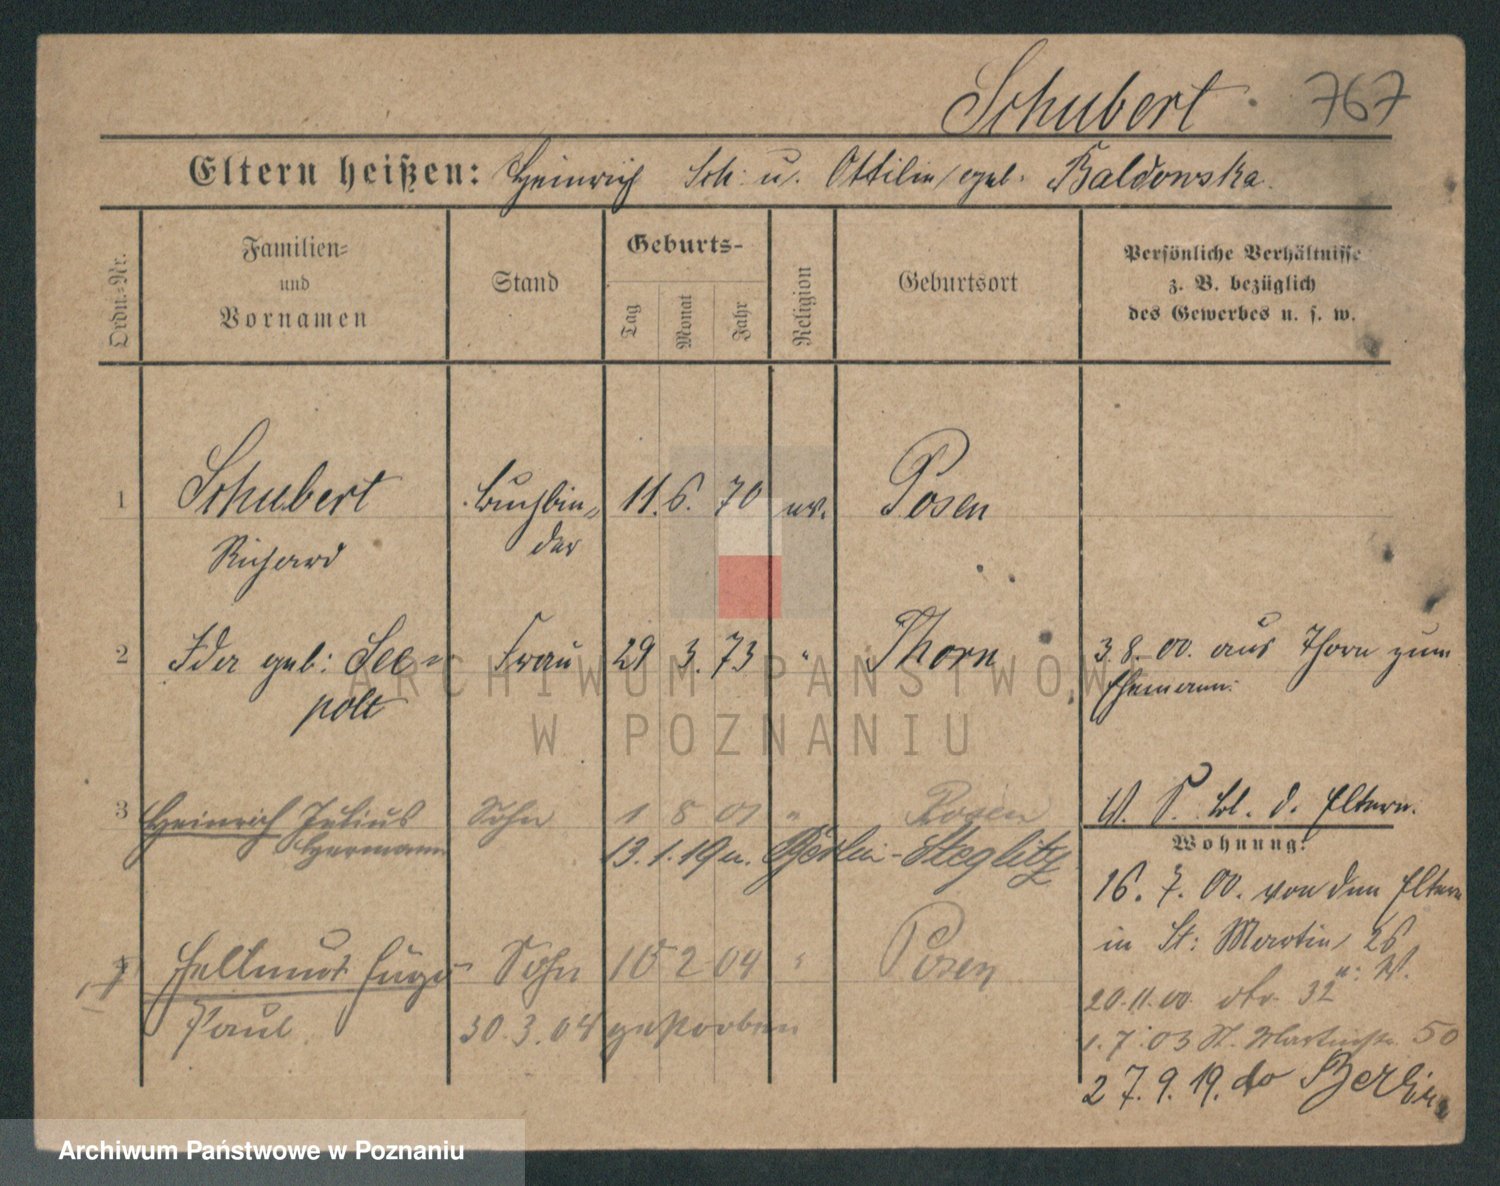 Schubert. 767
Eltern heißen: Heinrich Sch. u. Ottilie geb. Baldowska.
Ordn.-Nr.
Familien-
und
Vornamen
Stand
Geburts-
Tag
Monat
Jahr
Religion
Geburtsort
Persönliche Verhältnisse
z. B. bezüglich
des Gewerbes u. s. w.
1 Schubert Buchbin- 11. 6. 70 ev. Posen
Richard der
2 Ida geb: See- Frau 29 3. 73 " Thorn 3. 8. 00. aus Thorn zum
polt Ehemann.
3 Heinrich Julius Sohn 1 8 01 " Posen
Hermann 13. 1. 19 n. Berlin-Steglitz
d. Eltern.
Wohnung:
16. 7. 00. von den Eltern
in St: Martin 26
4 Hellmut Hugo Sohn 10 2 04 " Posen
Paul 30. 3. 04 gestorben
20. 11. 00 32
1. 7. 03 St. Martinstr. 50
27. 9. 19. Berlin
ARCHIWUM PAŃSTWOWE
W POZNANIU
Archiwum Państwowe w Poznaniu